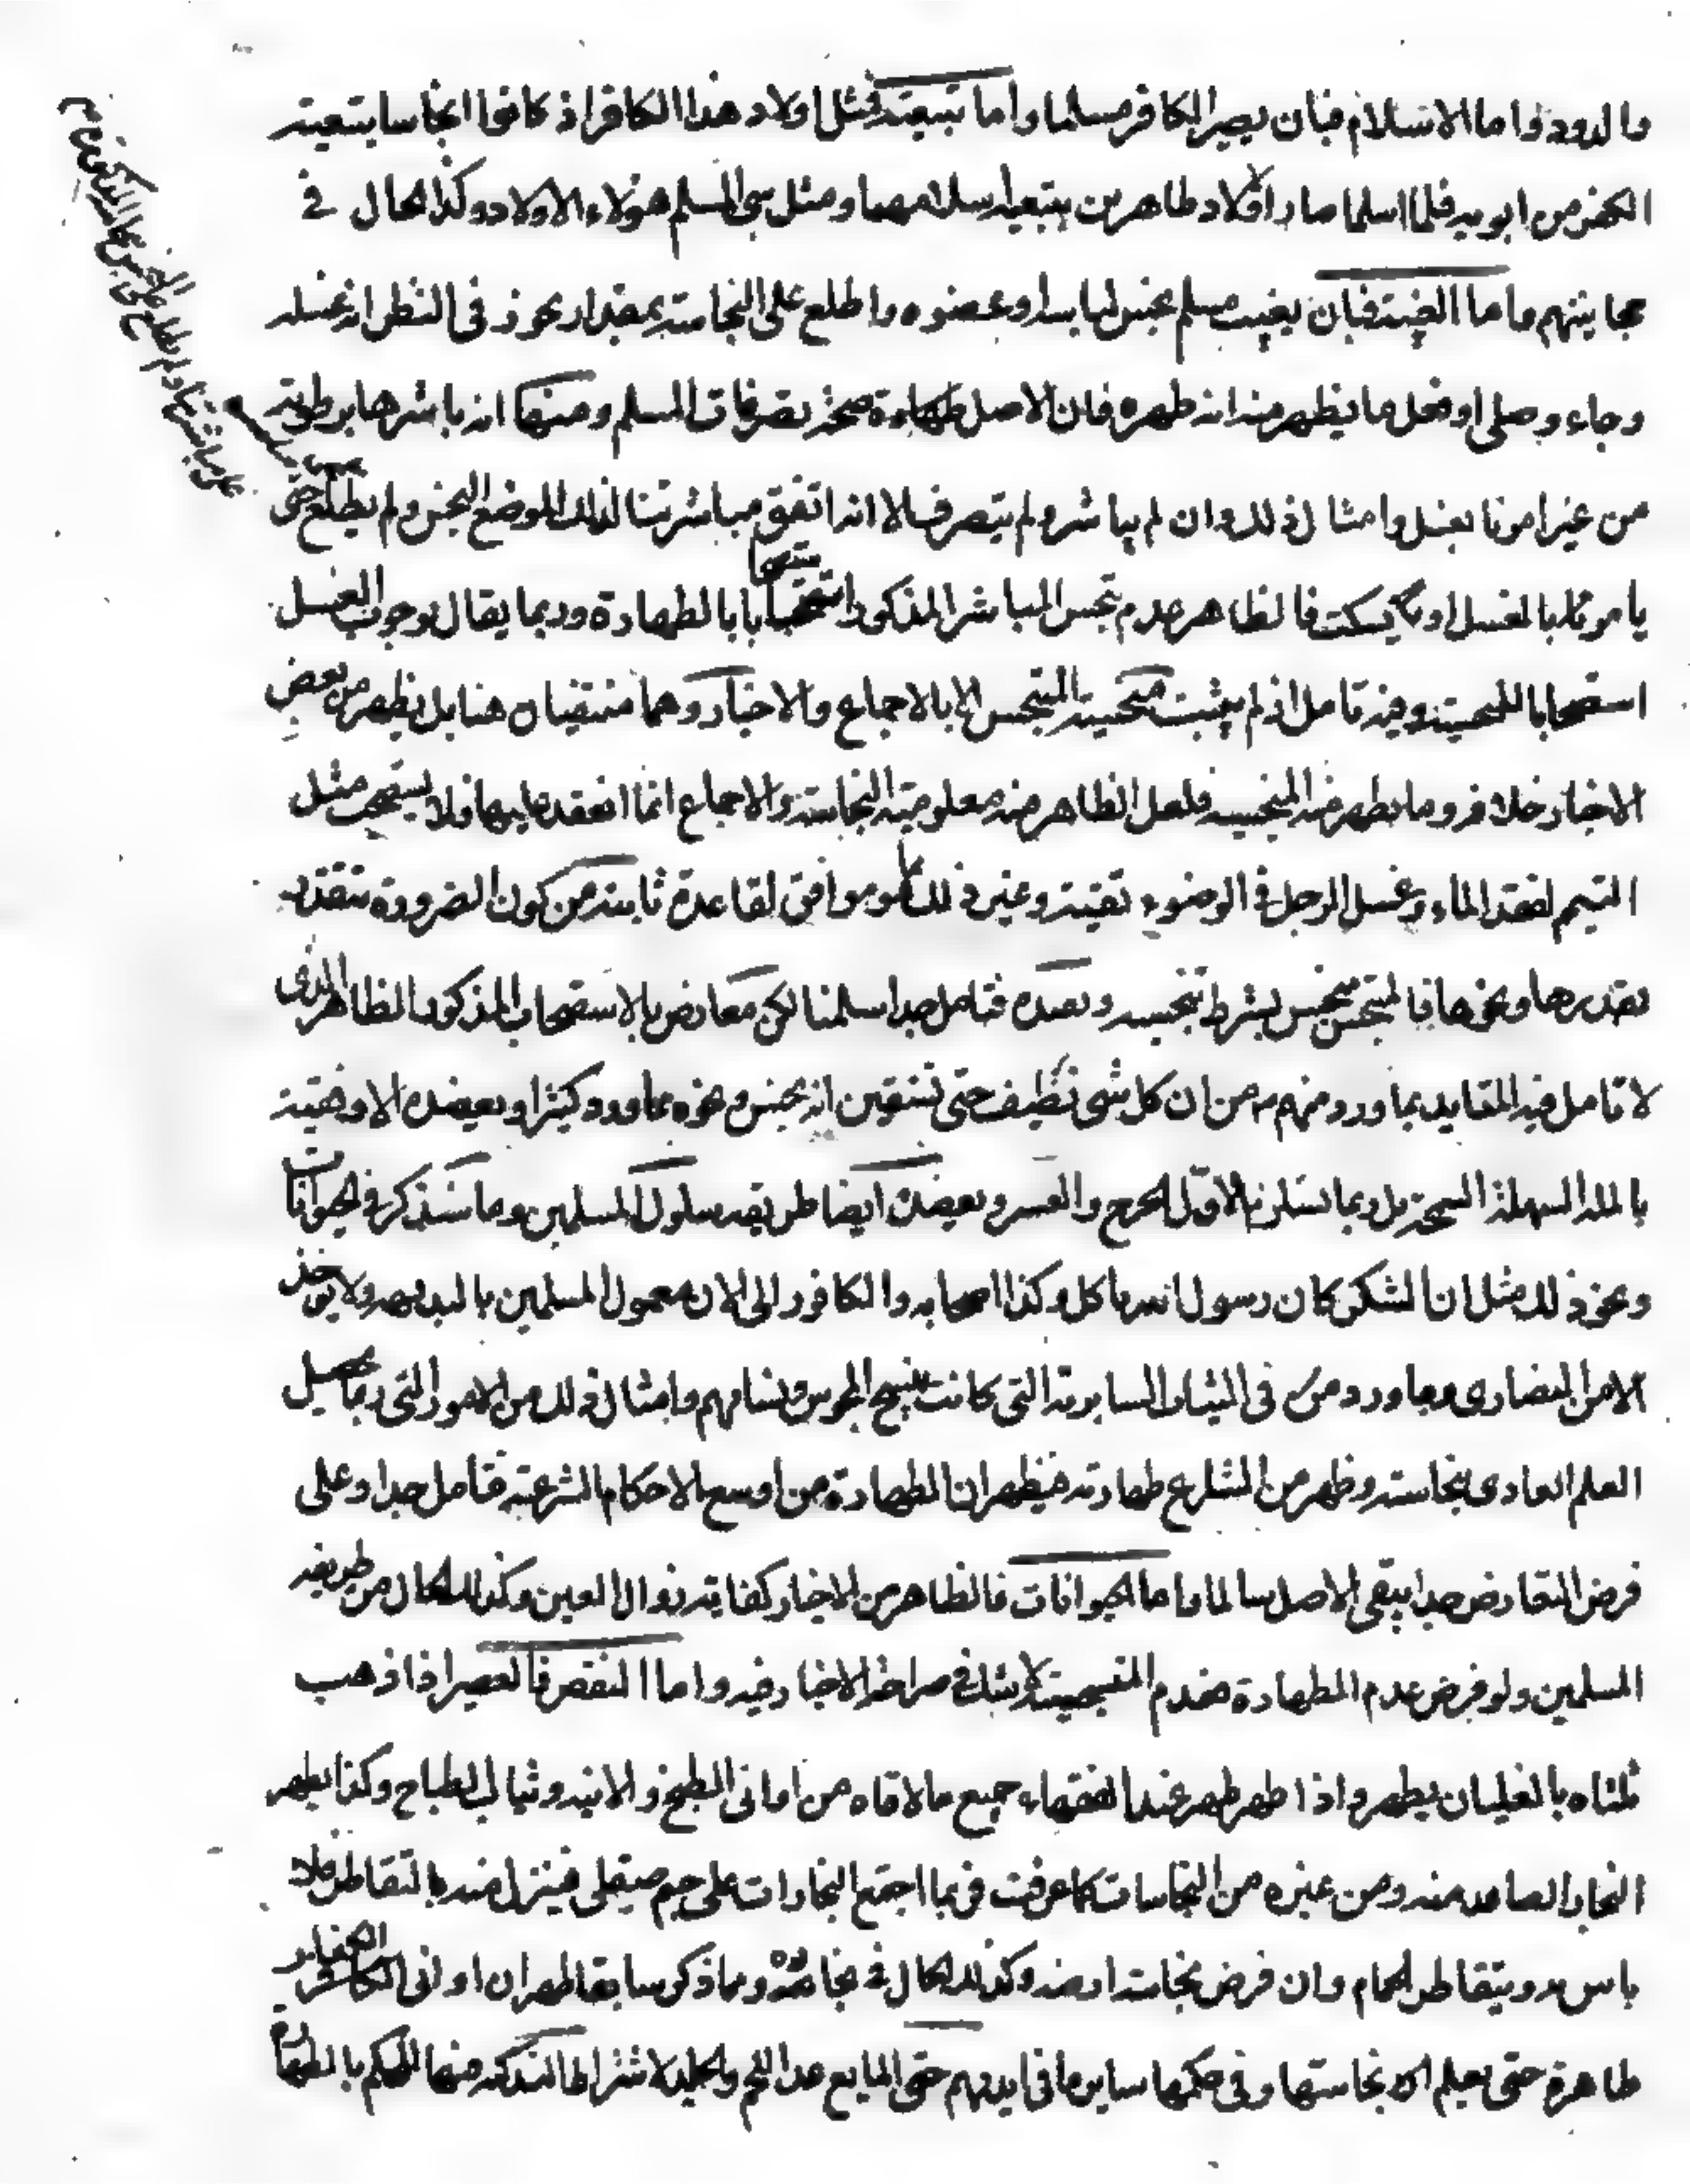 والدود واما الاسلام فبان يصير الكافر مسلما واما تبعيته فمثل اولاد هذا الكافر اذ كانوا انجاسا بتبعيته
الكفر من ابويه فلما اسلما صار اولاد طاهرين بتبعية اسلامهما ومثل سبى المسلم هؤلاء الاولاد وكذا الحال في
مجانينهم واما الغيبة فبان يغيب مسلم نجس لباسه او عضوه واطلع على النجاسة بمقدار يجوز في النظر انه غسله
وجاء وصلى او فعل ما يظهر منه انه طهره فان الاصل طهارة صحة تصرفات المسلم ومنها انه باشرها برطوبته
من غير امرنا بغسل وامثال ذلك وان لم يباشر ولم يتصرف الا انه اتفق مباشرتنا لذلك الموضع النجس ولم يطلع حتى
يامرنا بالغسل او يسكت فالظاهر عدم تنجس المباشر المذكور استصحابا بالطهارة وربما يقال بوجوب الغسل
استصحابا للنجسية وفيه تامل اذ لم يثبت منجسية المتنجس الا بالاجماع والاخبار وهما منتفيان هنا بل يظهر من بعض
الاخبار خلافه وما يظهر منه المنجسية فلعل الظاهر منه معلومية النجاسة والاجماع انما انعقد عليها فلا يستصحب مثل
التيمم لفقد الماء وغسل الرجل في الوضوء تقية وغير ذلك كما هو موافق لقاعدة ثابتة من كون الضرورة تتقدر
بقدرها ونحوها فالمتنجس منجس بشرط تنجيسه وبعده فتامل جدا سلمنا لكن معارض بالاستصحاب المذكور الظاهر الذى
لا تامل فيه المتايد بما ورد منهم من ان كل شى نظيف حتى تستيقن انه نجس ونحوه مما ورد كثيرا ويعضده الاوفقية
بالملة السهلة السمحة بل وبما استلزم الاول الحرج والعسر ويعضده ايضا طريقة سلوك المسلمين وما سنذكر في الحيوانات
ونحو ذلك مثل ان السكر كان رسول الله ياكل وكذا اصحابه والكافور الى الان معمول المسلمين بالبديهة ولا يؤخذ
الا من النصارى وما ورد من في الثياب السابرية التى كانت ينسج المجوس ونساؤهم وامثال ذلك من الامور التى ربما يحصل
العلم العادى بنجاسته وظهر من الشارع طهارته فيظهر ان الطهارة من اوسع الاحكام الشرعية فتامل جدا وعلى
فرض التعارض جدا يبقى الاصل سالما واما الحيوانات فالظاهر من الاخبار كفاية زوال العين وكذلك الحال من طريقة
المسلمين ولو فرض عدم الطهارة فعدم المنجسية لا شك في صراحة الاخبار فيه واما النقص فالعصير اذا ذهب
ثلثاه بالغليان يطهر واذا طهر طهر عند الفقهاء جميع ما لاقاه من اوانى الطبخ والانية وثياب الطباخ وكذا يطهر
البخار الصاعد منه ومن غيره من النجاسات كما عرفت فربما اجتمع البخارات على جسم صيقلى فينزل منه بالتقاطر فلا
باس به ويتقاطر الحمام وان فرض نجاسة ارضه وكذلك الحال في بخاره ومما ذكر سابقا ظهر ان اوانى الكفار
طاهرة حتى يعلم نجاستها وفى حكمها ساير ما في ايديهم حتى المايع عدا اللحم والجلد لاشتراط التذكية منها للحكم بالطهارة